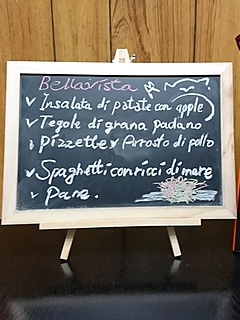 Bellavista
✓ Insalata di patate con apple
✓ Tegole di grana padano
✓ Pizzette ✓ Arrosto di pollo
✓ Spaghetti con ricci di mare
✓ Pane.